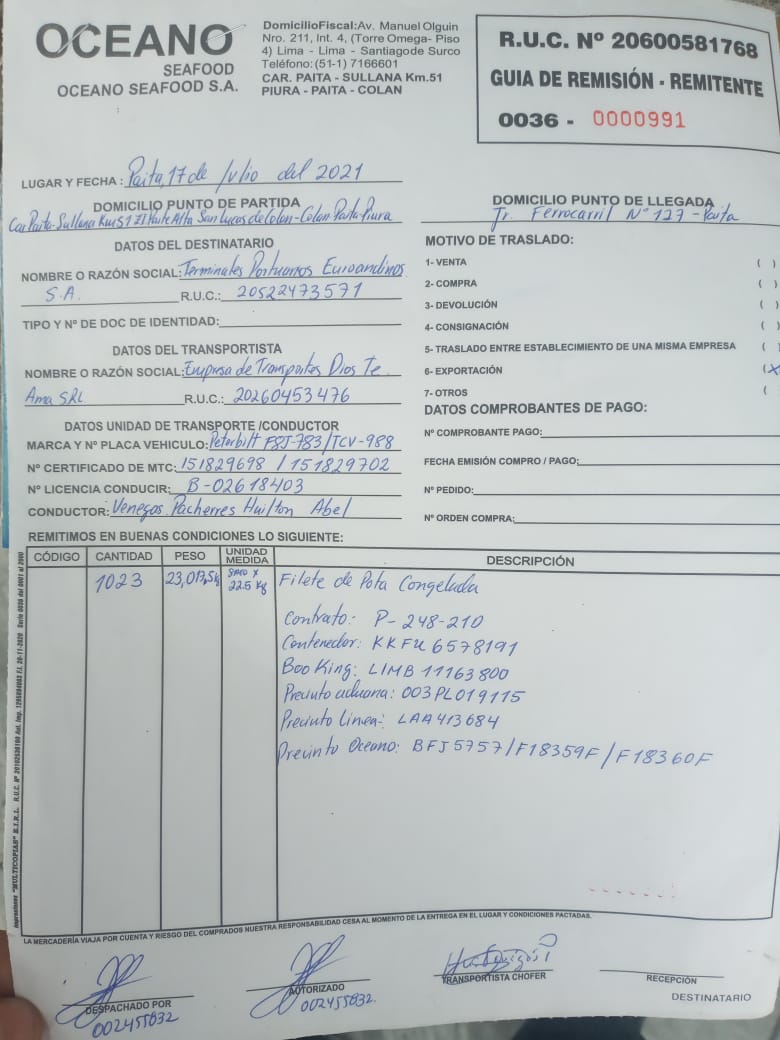 OCEANO
SEAFOOD
OCEANO SEAFOOD S.A.
DomicilioFiscal:Av. Manuel Olguin
Nro. 211, Int. 4, (Torre Omega- Piso
4) Lima - Lima - Santiagode Surco
Teléfono:(51-1) 7166601
CAR. PAITA - SULLANA Km.51
PIURA - PAITA - COLAN
R.U.C. Nº 20600581768
GUIA DE REMISIÓN - REMITENTE
0036 - 0000991
LUGAR Y FECHA : Paita, 17 de Julio del 2021
DOMICILIO PUNTO DE PARTIDA
Car. Paita-Sullana Km 51 ZI Parte Alta San Lucas de Colan-Colan-Paita-Piura
DOMICILIO PUNTO DE LLEGADA
Jr. Ferrocarril Nº 127 - Paita
DATOS DEL DESTINATARIO
NOMBRE O RAZÓN SOCIAL: Terminales Portuarios Euroandinos
S.A. R.U.C.: 20522473571
TIPO Y Nº DE DOC DE IDENTIDAD:
DATOS DEL TRANSPORTISTA
NOMBRE O RAZÓN SOCIAL: Empresa de Transportes Dios Te
Ama SRL R.U.C.: 20260453476
DATOS UNIDAD DE TRANSPORTE /CONDUCTOR
MARCA Y Nº PLACA VEHICULO: Peterbilt F8J-783/TCV-988
Nº CERTIFICADO DE MTC: 151829698 / 151829702
Nº LICENCIA CONDUCIR: B-02618403
CONDUCTOR: Venegas Pacherres Huilton Abel
MOTIVO DE TRASLADO:
1- VENTA ( )
2- COMPRA ( )
3- DEVOLUCIÓN ( )
4- CONSIGNACIÓN ( )
5- TRASLADO ENTRE ESTABLECIMIENTO DE UNA MISMA EMPRESA (
6- EXPORTACIÓN (X
7- OTROS (
DATOS COMPROBANTES DE PAGO:
Nº COMPROBANTE PAGO:
FECHA EMISIÓN COMPRO / PAGO:
Nº PEDIDO:
Nº ORDEN COMPRA:
REMITIMOS EN BUENAS CONDICIONES LO SIGUIENTE:
CÓDIGO CANTIDAD PESO UNIDAD MEDIDA DESCRIPCIÓN
1023 23,017,5kg Saco x 22.5 kg Filete de Pota Congelada
Contrato: P-248-210
Contenedor: KKFU 6578191
Booking: LIMB 11163800
Precinto aduana: 003PL019115
Precinto Linea: LAA413684
Precinto Oceano: BFJ5757/F18359F/F18360F
LA MERCADERÍA VIAJA POR CUENTA Y RIESGO DEL COMPRADOS NUESTRA RESPONSABILIDAD CESA AL MOMENTO DE LA ENTREGA EN EL LUGAR Y CONDICIONES PACTADAS.
DESPACHADO POR
002455832
AUTORIZADO
002455832.
TRANSPORTISTA CHOFER
RECEPCIÓN
DESTINATARIO